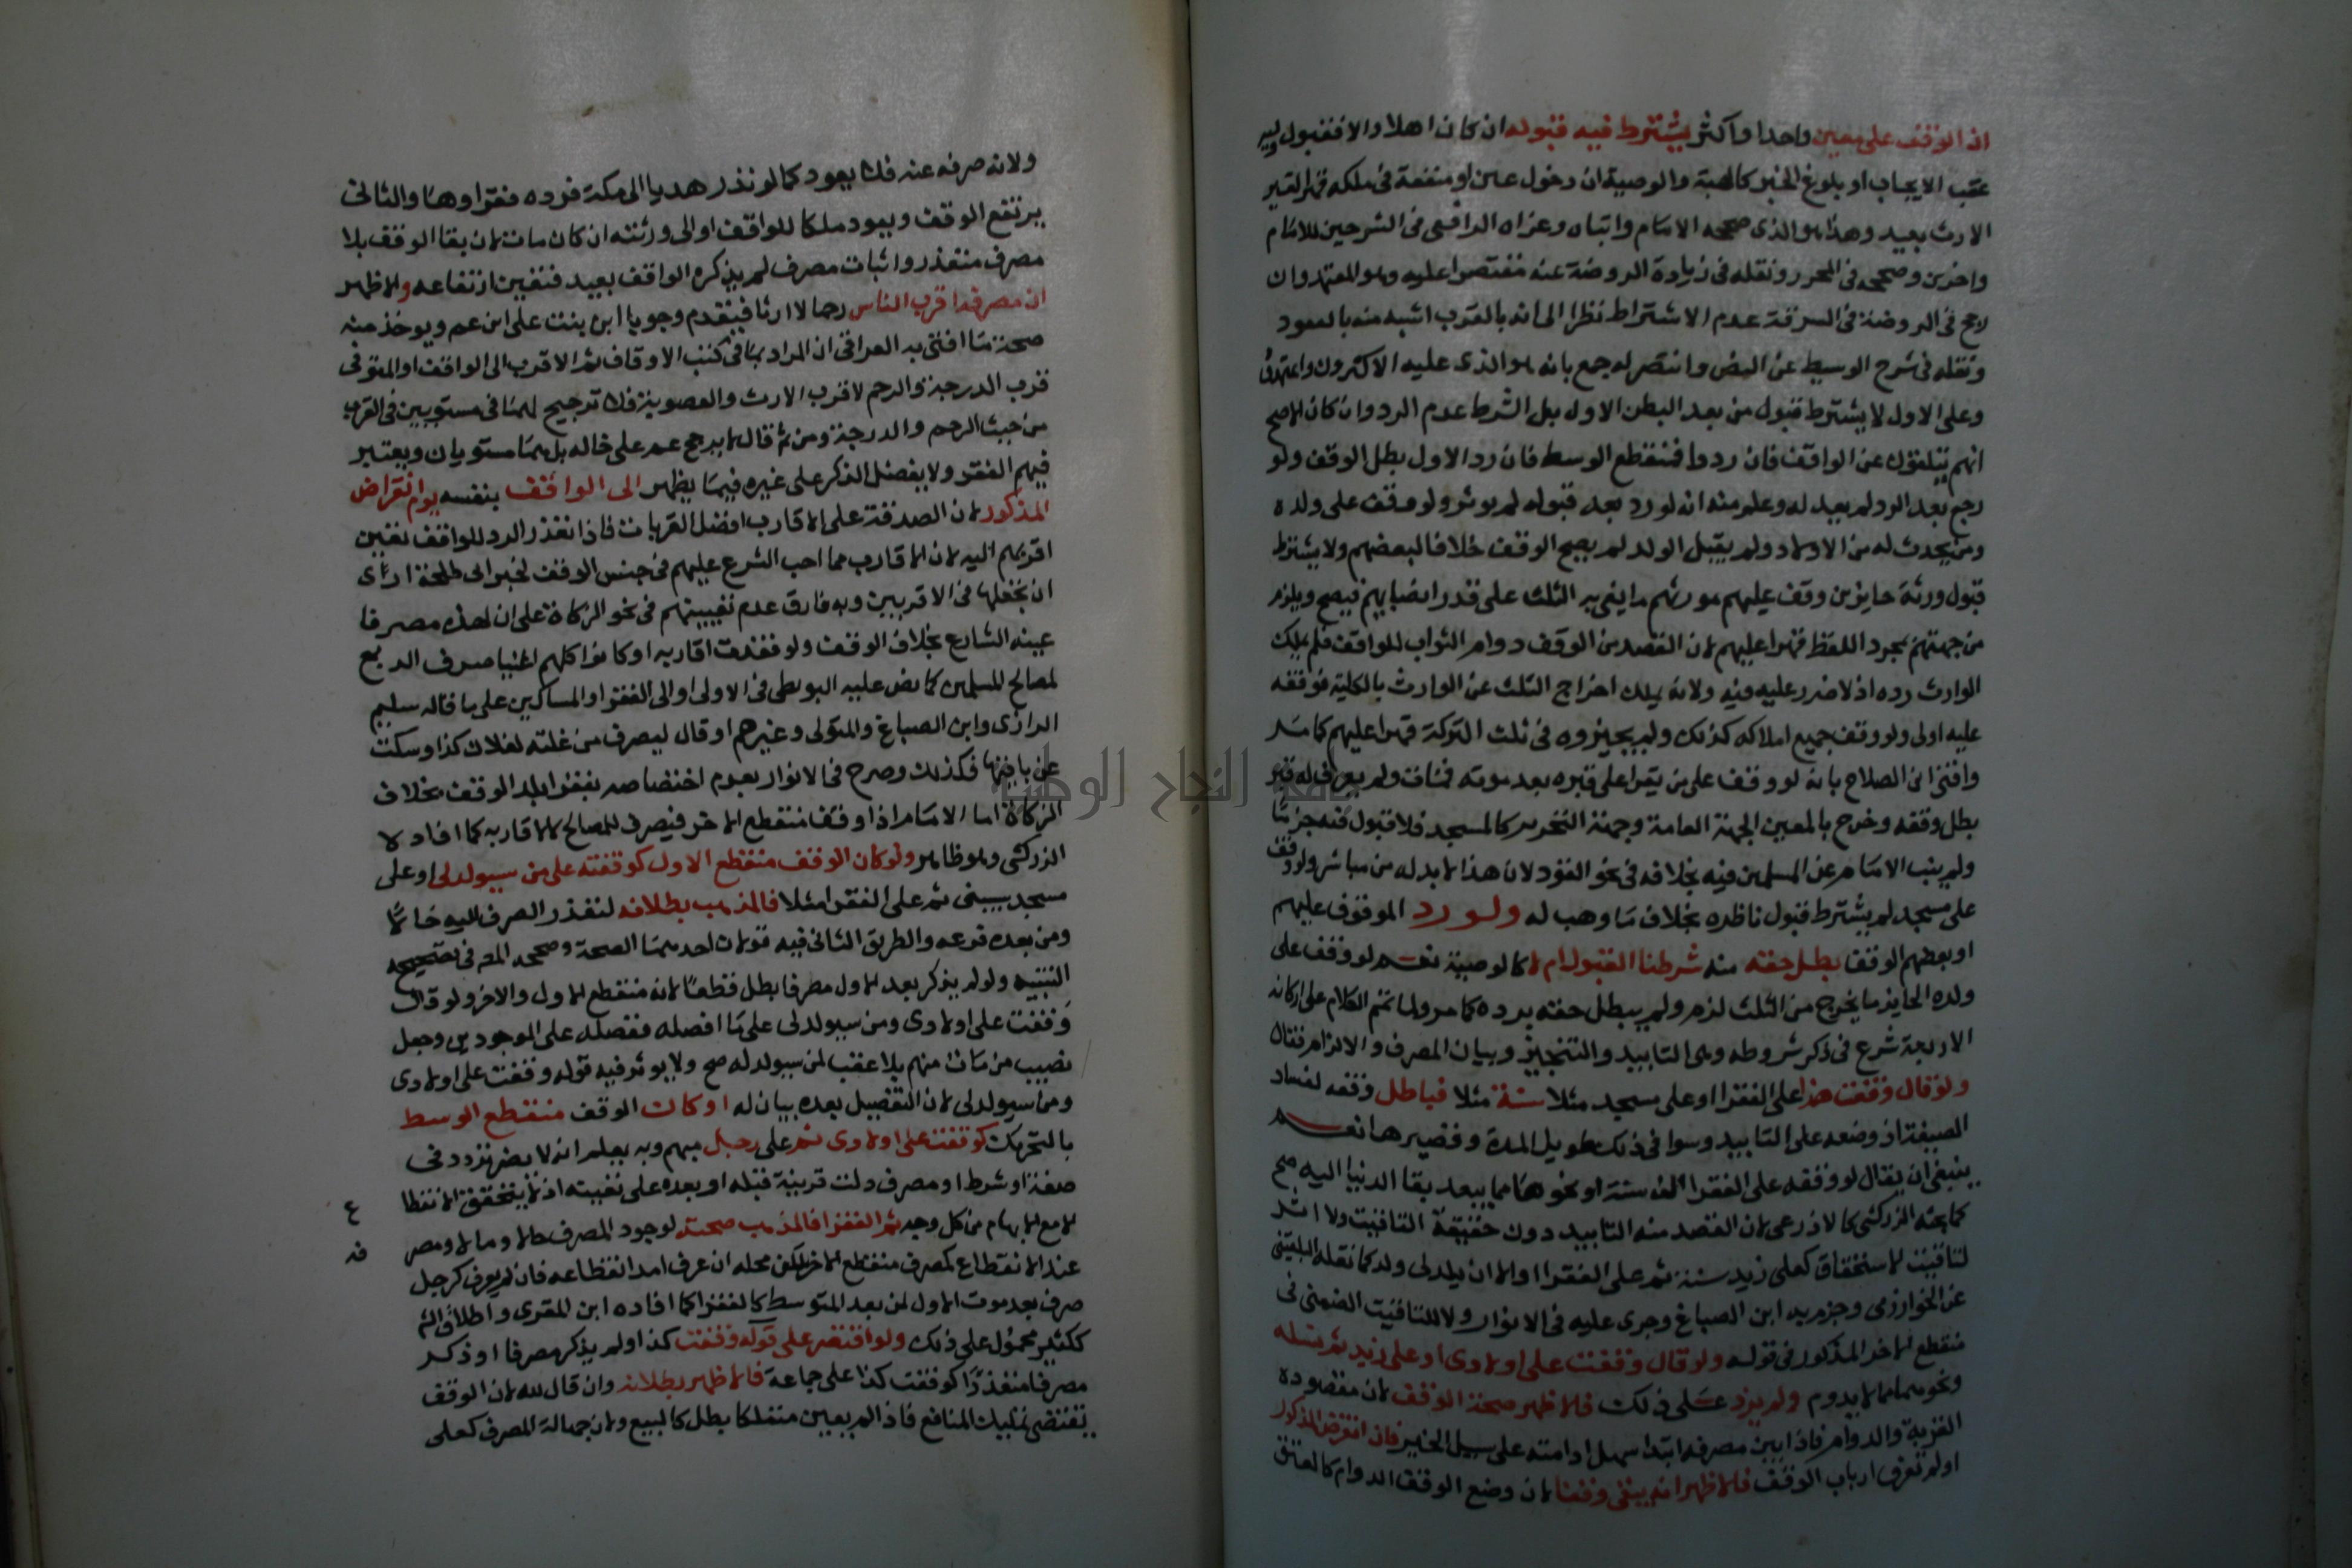 ان الوقف على معين واحد او اكثر يشترط فيه قبوله ان كان اهلا والا فقبول وليه
عقب الايجاب او بلوغ الخبر كالهبة والوصية ان دخول عين او منفعة في ملكه قهرا لغير
الارث بعيد وهذا هو الذى صححه الامام واتباه وعزاه الرافعى في الشرحين للامام
واخرين وصححه في المحرر ونقله في زيادة الروضة عنه مقتصرا عليه وهو المعتمد وان
رجح في الروضة في السرقة عدم الاشتراط نظرا الى انه بالقرب اشبه منه بالعقود
ونقله في شرح الوسيط عن النص وانتصر له جمع بانه هو الذى عليه الاكثرون واعتمدوه
وعلى الاول لا يشترط قبول من بعد البطن الاول بل الشرط عدم الرد وان كان الاصح
انهم يتلقون عن الواقف فان ردوا فمنقطع الوسط فان رد الاول بطل الوقف ولو
رجع بعد الرد لم يعد له وعلم منه انه لو رد بعد قبوله لم يوثر ولو وقف على ولده
ومن يحدث له من الاولاد ولم يقبل الولد لم يصح الوقف خلافا لبعضهم ولا يشترط
قبول ورثة حايزين وقف عليهم مورثهم ما يفى به الثلث على قدر انصبايهم فيصح ويلزم
من جهتهم بمجرد اللفظ قهرا عليهم لان القصد من الوقف دوام الثواب للواقف فلم يملك
الوارث رده اذ لا ضرر عليه فيه ولانه يملك اخراج الثلث عن الوارث بالكلية فوقفه
عليه اولى ولو وقف جميع املاكه كذلك ولم يجيزوه في ثلث التركة قهرا عليهم كما مر
وافتى ابن الصلاح بانه لو وقف على من يقرا على قبره بعد موته فمات ولم يعرف له قبر
بطل وقفه وخرج بالمعين الجهة العامة وجهة التحرير كالمسجد فلا قبول فيه جزما
ولم ينب الامام عن المسلمين فيه بخلافه في نحو القود لان هذا لا بد له من مباشر ولو وقف
على مسجد لم يشترط قبول ناظره بخلاف ما وهب له ولو رد الموقوف عليهم
او بعضهم الوقف بطل حقه منه شرطنا القبول ام لا كالوصية نعم لو وقف على
ولده الحايز ما يخرج من الثلث لزم ولم يبطل حقه برده كما مر ولما تمم الكلام على اركانه
الاربعة شرع في ذكر شروطه وهى التابيد والتنجيز وبيان المصرف والالزام فقال
ولو قال وقفت هذا على الفقرا او على مسجد مثلا سنة مثلا فباطل وقفه لفساد
الصيغة اذ وضعه على التابيد وسوا في ذلك طويل المدة وقصيرها نعم
ينبغى ان يقال لو وقفه على الفقرا الف سنة او نحوها مما يبعد بقا الدنيا اليه صح
كما بحثه الزركشى كالاذرعى لان القصد منه التابيد دون حقيقة التاقيت ولا اثر
لتاقيت الاستحقاق كعلى زيد سنة ثم على الفقرا او الا ان يلد لى ولد كما نقله البلقينى
عن الخوارزمى وجزم به ابن الصباغ وجرى عليه في الانوار ولا للتاقيت الضمنى في
منقطع الاخر المذكور في قوله ولو قال وقفت على اولادى او على زيد ثم نسله
ونحوهما مما لا يدوم ولم يزد على ذلك فالاظهر صحة الوقف لان مقصوده
القربة والدوام فاذا بين مصرفه ابتدا سهل ادامته على سبيل الخير فان انقرض المذكور
او لم تعرف ارباب الوقف فالاظهر انه يبقى وقفا لان وضع الوقف الدوام كالعتق
ولانه صرفه عنه فلا يعود كما لو نذر هديا الى مكة فرده فقراوها والثانى
يرتفع الوقف ويعود ملكا للواقف او الى ورثته ان كان مات لان بقا الوقف بلا
مصرف متعذر واثبات مصرف لم يذكره الواقف بعيد فتعين ارتفاعه والاظهر
ان مصرفه اقرب الناس رحما لا ارثا فيقدم وجوبا ابن بنت على ابن عم ويوخذ منه
صحة ما افتى به العراقى ان المراد بما في كتب الاوقاف ثم الاقرب الى الواقف او المتوفى
قرب الدرجة والرحم لا قرب الارث والعصوبة فلا ترجيح لهما في مستويين في القرب
من حيث الرحم والدرجة ومن ثم قال لا يرجح عم على خاله بل هما مستويان ويعتبر
فيهم الفقر ولا يفضل الذكر على غيره فيما يظهر الى الواقف بنفسه يوم انقراض
المذكور لان الصدقة على الاقارب افضل القربات فاذا تعذر الرد للواقف تعين
اقربهم اليه لان الاقارب مما احب الشرع عليهم في جنس الوقف لخبر ابى طلحة ارى
ان تجعلها في الاقربين وبه فارق عدم تعيينهم في نحو الزكاة على ان لهذه مصرفا
عينه الشارع بخلاف الوقف ولو فقدت اقاربه او كانوا كلهم اغنيا صرف الريع
لمصالح المسلمين كما نص عليه البويطى في الاولى او الى الفقرا والمساكين على ما قاله سليم
الرازى وابن الصباغ والمتولى وغيرهم او قال ليصرف من غلته لفلان كذا وسكت
عن باقيها فكذلك وصرح في الانوار بعدم اختصاصه بفقرا بلد الوقف بخلاف
الزكاة اما الامام اذا وقف منقطع الاخر فيصرف للمصالح لا لاقاربه كما افاده
الزركشى وهو ظاهر ولو كان الوقف منقطع الاول كوقفته على من سيولد لى او على
مسجد سيبنى ثم على الفقرا مثلا فالمذهب بطلانه لتعذر الصرف اليه حالا
ومن بعده فرعه والطريق الثانى فيه قولان احدهما الصحة وصححه المص في تصحيحه
التنبيه ولو لم يذكر بعد الاول مصرفا بطل قطعا لانه منقطع الاول والاخر ولو قال
وقفت على اولادى ومن سيولد لى على ما افصله ففصله على الموجودين وجعل
نصيب من مات منهم بلا عقب لمن سيولد له صح ولا يوثر فيه قوله وقفت على اولادى
ومن سيولد لى لان التفصيل بعده بيان له او كان الوقف منقطع الوسط
بالتحريك كوقفت على اولادى ثم على رجل مبهم وبه يعلم انه لا يضر تردد في
صفة او شرط او مصرف دلت قرينة قبله او بعده على تعيينه اذ لا يتحقق الانقطا
ع
الا مع الابهام من كل وجه ثم الفقرا فالمذهب صحته لوجود المصرف حالا ومالا ومصر
فه
عند الانقطاع كمصرف منقطع الاخر لكن محله ان عرف امد انقطاعه فان لم يعرف كرجل
صرف بعد موت الاول لمن بعد المتوسط كالفقرا كما افاده ابن المقرى واطلاق الشم
ككثير محمول على ذلك ولو اقتصر على قوله وقفت كذا ولم يذكر مصرفا او ذكر
مصرفا متعذرا كوقفت كذا على جماعة فالاظهر بطلانه وان قال لله لان الوقف
يقتضى تمليك المنافع فاذا لم يعين متملكا بطل كالبيع ولان جهالة المصرف كعلى